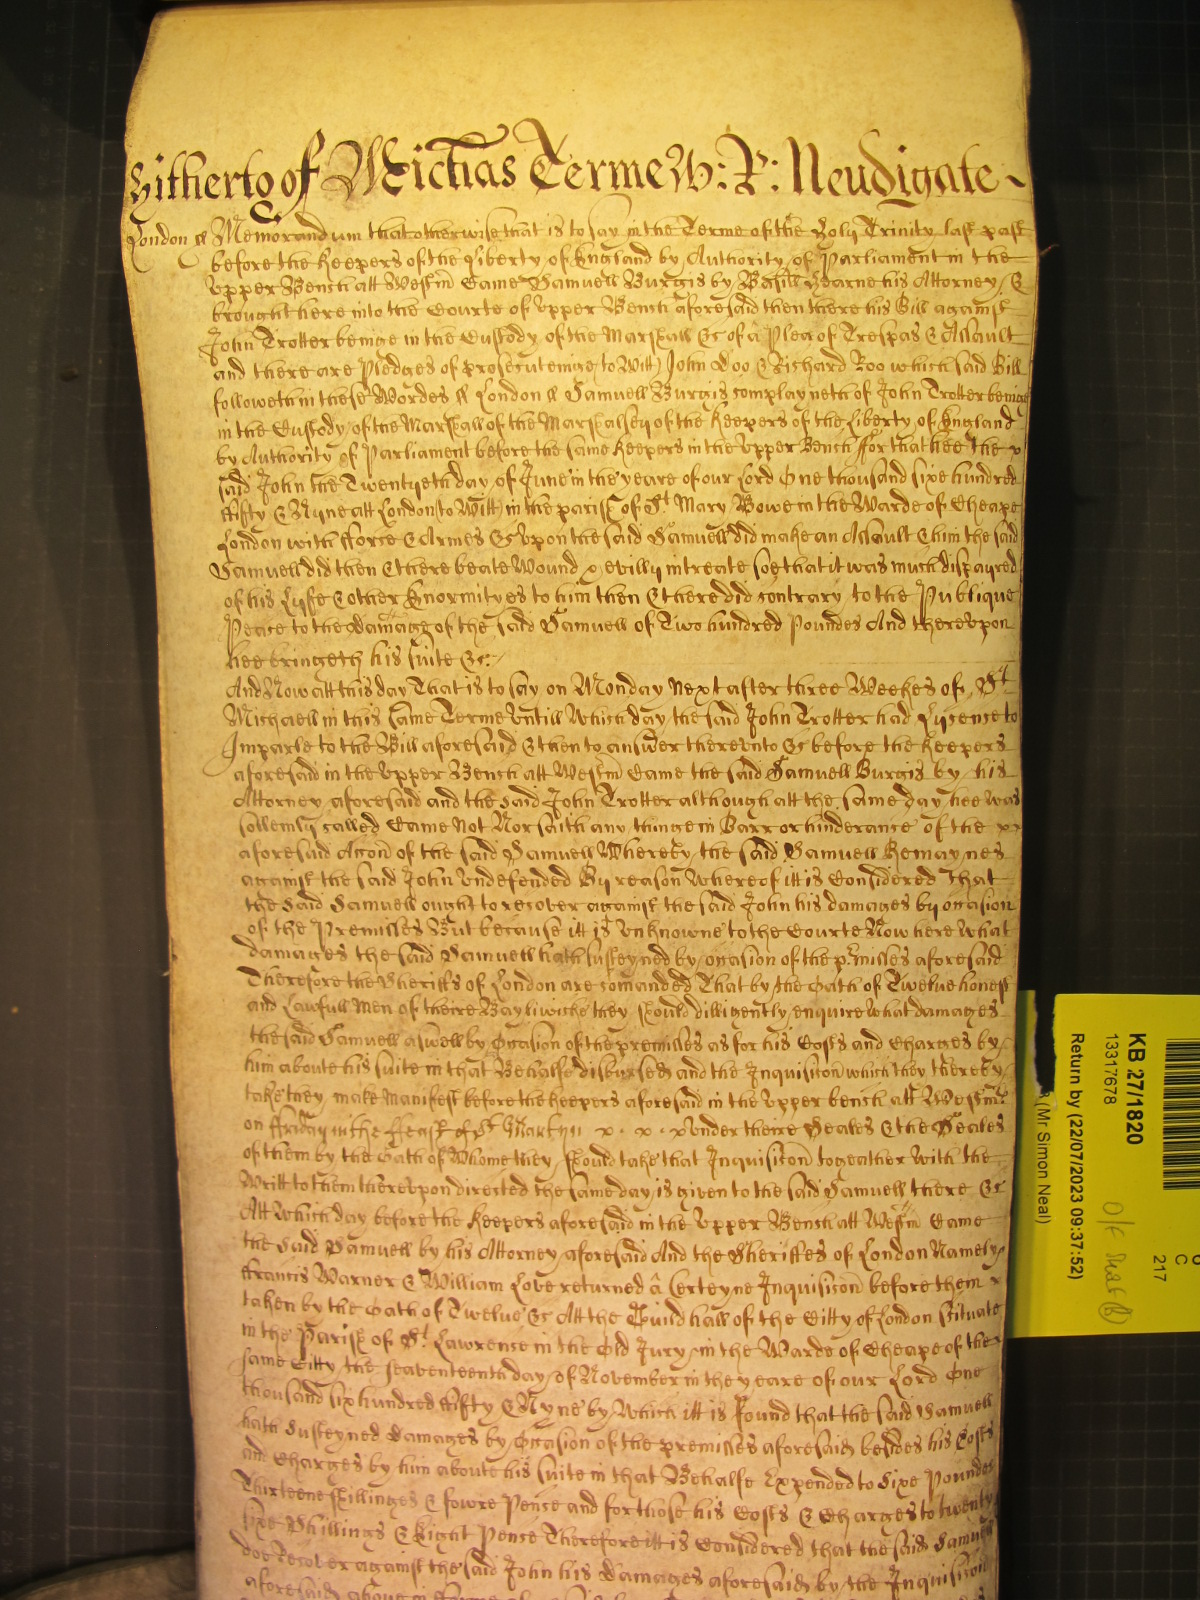 Hitherto of Mich'as Terme W: P: Neudigate
London ss Memorandum that otherwise that is to say in the Terme of the Holy Trinity last past
before the Keepers of the Liberty of England by Authority of Parliament in the
Upper Bench att Westm Came Samuell Burgis by Basill Hearne his Attorney &
brought here into the Courte of Upper Bench aforesaid then there his Bill against
John Trotter beinge in the Custody of the Marshall &c of a Plea of Trespas & Assault
and there are Pledges of prosecuteinge to Witt John Doo & Richard Roo which said Bill
followeth in these Wordes ss London ss Samuell Burgis complayneth of John Trotter beinge
in the Custody of the Marshall of the Marshalsey of the Keepers of the Liberty of England
by Authority of Parliament before the same Keepers in the Upper Bench ffor that hee the
said John the Twentyeth day of June in the yeare of our Lord One thousand sixe hundred
ffifty & Nyne att London to Witt in the parish of St Mary Bowe in the Warde of Cheape
London with fforce & Armes &c upon the said Samuell did make an Assault & him the said
Samuell did then & there beate Wound & evilly intreate soe that it was much dispayred
of his Lyfe & other Enormityes to him then & there did contrary to the Publique
Peace to the damage of the said Samuell of Two hundred Poundes And thereupon
hee bringeth his suite &c:
And Now att this day That is to say on Monday Next after three Weekes of St
Michaell in this same Terme Untill Which day the said John Trotter had Lycense to
Imparle to the Bill aforesaid & then to answer thereunto &c before the Keepers
aforesaid in the Upper Bench att Westm Came the said Samuell Burgis by his
Attorney aforesaid and the said John Trotter although att the same day hee was
sollemly called Came Not Nor saith any thinge in Barr or hinderance of the
aforesaid Accon of the said Samuell Whereby the said Samuell Remaynes
against the said John Undefended By reason Whereof itt is Considered That
the said Samuell ought to recover against the said John his damages by occasion
of the Premisses But because itt is Unknowne to the Courte Now here What
damages the said Samuell hath susteyned by occasion of the premisses aforesaid
Therefore the Sheriffs of London are comanded That by the Oath of Twelve honest
and Lawfull Men of theire Bayliwicke they should dilligently enquire What damages
the said Samuell aswell by Occasion of the premisses as for his Costs and Charges by
him about his suite in that Behalfe disbursed and the Inquisicon which they thereby
take they make Manifest before the Keepers aforesaid in the Upper bench att Westm
on ffriday in the feast of St Martyn under theire Seales & the Seales
of them by the Oath of Whome they should take that Inquisicon togeather With the
Writt to them thereupon directed the same day is given to the said Samuell there &c
Att Which day before the Keepers aforesaid in the Upper Bench att Westm Came
the said Samuell by his Attorney aforesaid And the Sheriffes of London Namely
ffrancis Warner & William Love returned a Certeyne Inquisicon before them
taken by the Oath of Twelve &c Att the Guildhall of the Citty of London Scituate
in the Parish of St Lawrence in the Old Jury in the Warde of Cheape of the
same Citty the seaventeenth day of November in the yeare of our Lord One
thousand six hundred ffifty & Nyne by Which itt is found that the said Samuell
hath Susteyned Damages by Occasion of the premisses aforesaid besides his Costs
and Charges by him about his suite in that Behalfe Expended to Sixe Poundes
Thirteene shillinges & fowre Pence and for those his Costs & Charges to twenty
sixe Shillings & Eight Pence Therefore itt is Considered that the said Samuell
doe Recover against the said John his Damages aforesaid by the Inquisicon
aforesaid above in
KB 27/1820
13317678
Return by (22/07/2023 09:37:52)
(Mr Simon Neal)
C
217